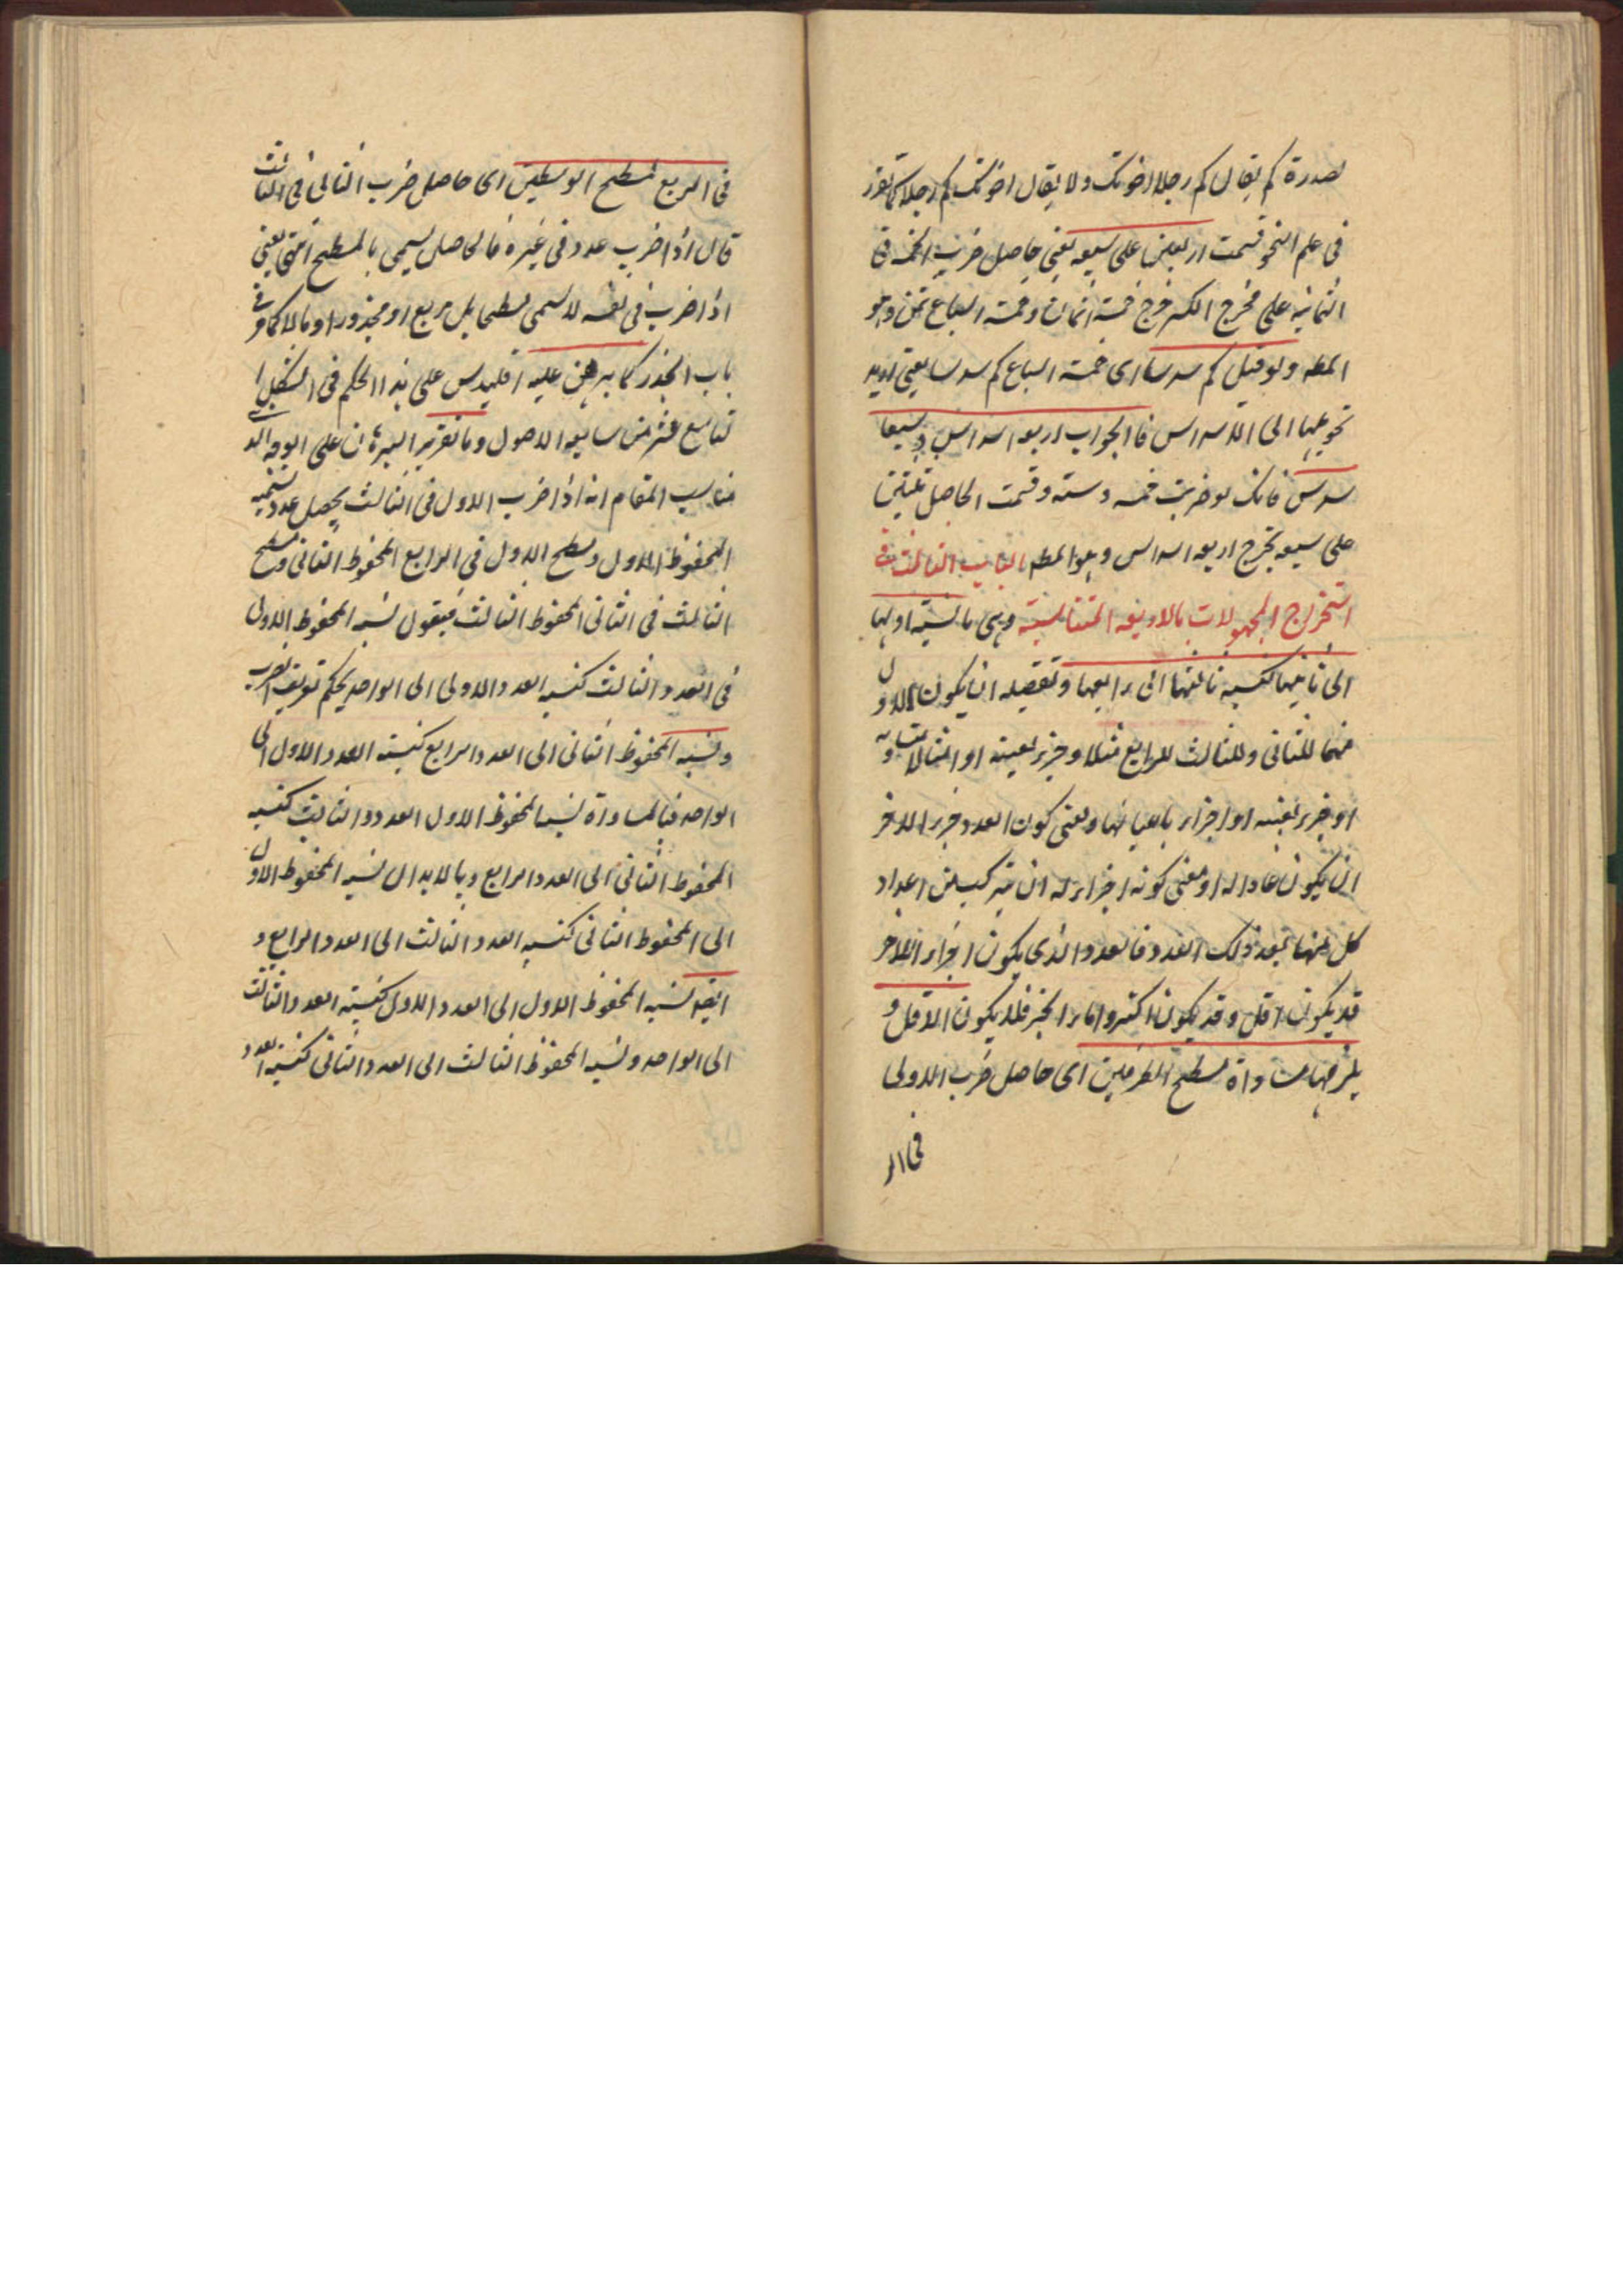 لصدرة كم يقال كم رجلا اخوتك ولا يقال اخوتك كم رجلا كما تقرر
فى علم النحو قسمت اربعين على سبعه يعنى حاصل ضرب الخمسه فى
الثمانيه على مخرج الكسر خرج خمسة اثمان وخمسة اسباع ثمن وهو
المطه ولو قيل كم سدسا اى خمسة اسباع كم سدسا يعنى اريد
تحويلها الى الاسداس فالجواب اربعه اسداس وسبعا
سدس فانك لو ضربت خمسه وسته وقسمت الحاصل ثلثين
على سبعه يخرج اربعه اسداس وهو المطه الباب الثالث فى
استخراج المجهولات بالاربعه المتناسبة وهى ما نسبة اولها
الى ثانيها كنسبه ثالثها الى رابعها وتفصله ان يكون الاول
منها للثانى وللثالث للرابع مثلا وجزء بعينه او امثالا متساويه
او جزء بعينه او اجزاء باعيانها ومعنى كون العدد جزءا لاخر
ان يكون عادا له ومعنى كونه اجزاء له ان يتركب من اعداد
كل منها يعد ذلك العدد فالعدد الذى يكون اجزاء الاخر
قد يكون اقل وقد يكون اكثر واما الجزء فلا يكون الا اقل و
يلزمها مساواة مسطح الطرفين اى حاصل ضرب الاول
فى الر
فى الربع لمسطح الوسطين اى حاصل ضرب الثانى فى الثالث
قال اذا ضرب عدد فى غيره فالحاصل يسمى بالمسطح انتهى يعنى
اذا ضرب فى نفسه لا يسمى مسطحا بل مربع او مجذورا او مالا كما مر فى
باب الجذر كما برهن عليه اقليدس على هذا الحكم فى الشكل ا
لتاسع عشر من سابعه الاصول وما تقرير البرهان على الوجه الذى
مناسب المقام انه اذا ضرب الاول فى الثالث يحصل عدد نسميه
المحفوظ الاول ومسطح الاول فى الرابع المحفوظ الثانى ومسطح
الثالث فى الثانى المحفوظ الثالث فيقول نسبه المحفوظ الاول
فى العدد الثالث كنسبه العدد الاول الى الواحد بحكم تعريف الضرب
ونسبه المحفوظ الثانى الى العدد الرابع كنسبة العدد الاول الى
الواحد فبالمساواة نسبه المحفوظ الاول العدد الثالث كنسبه
المحفوظ الثانى الى العدد الرابع وبالابدال نسبه المحفوظ الاول
الى المحفوظ الثانى كنسبه العدد الثالث الى العدد الرابع و
ايضا نسبه المحفوظ الاول الى العدد الاول كنسبة العدد الثالث
الى الواحد ونسبه المحفوظ الثالث الى العدد الثانى كنسبة العدد